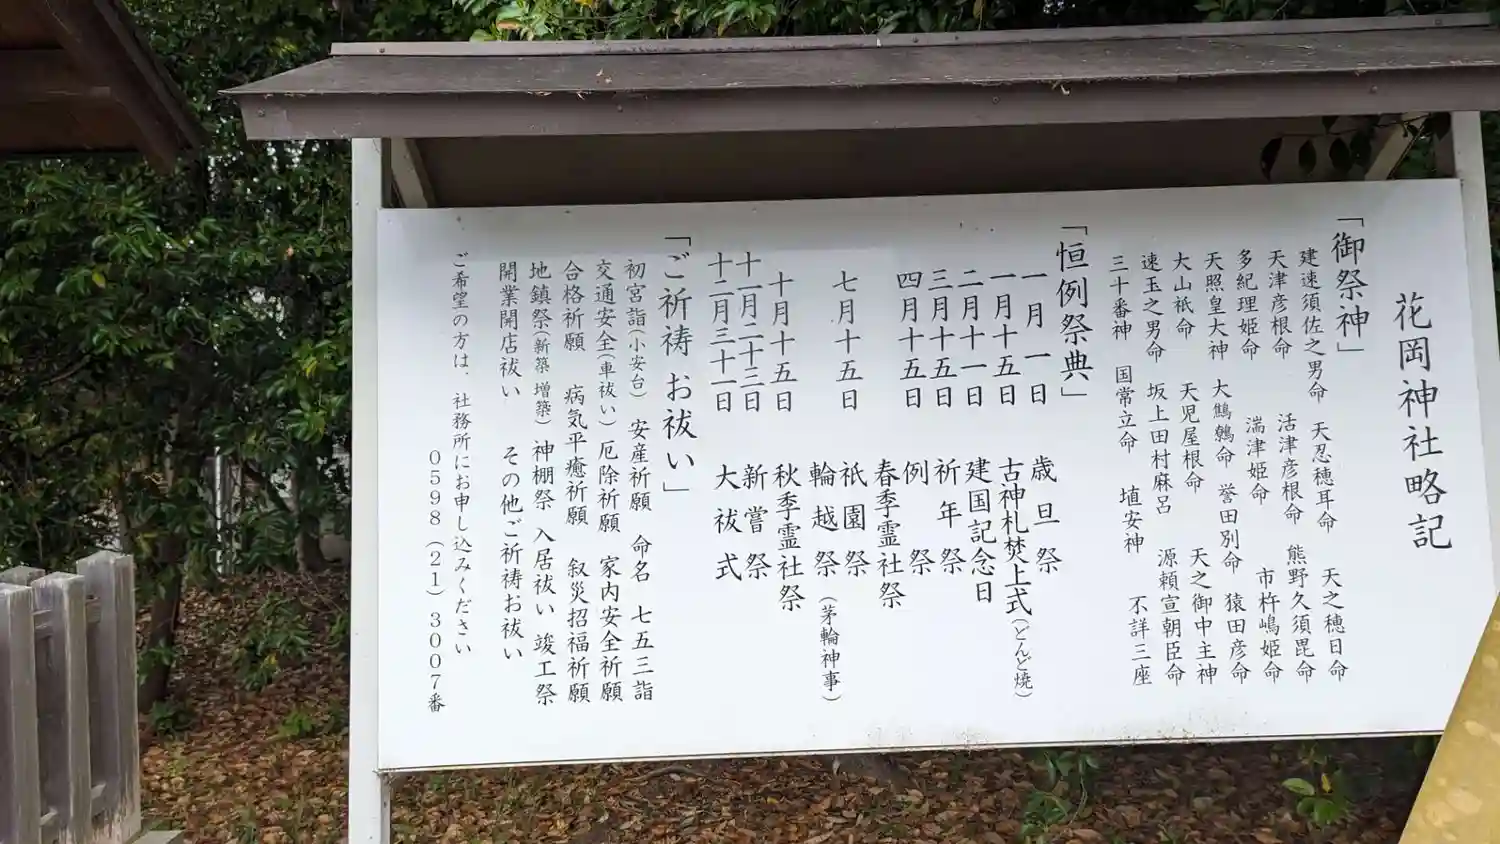 花岡神社略記
「御祭神」
建速須佐之男命 天忍穂耳命 天之穂日命
天津彦根命 活津彦根命 熊野久須毘命
多紀理姫命 湍津姫命 市杵嶋姫命
天照皇大神 大鷦鷯命 誉田別命 猿田彦命
大山祇命 天児屋根命 天之御中主神
速玉之男命 坂上田村麻呂 源頼宣朝臣命
三十番神 国常立命 埴安神 不詳三座
「恒例祭典」
一月一日 歳旦祭
一月十五日 古神札焚上式(どんど焼)
二月十一日 建国記念日
三月十五日 祈年祭
四月十五日 例祭
春季霊社祭
七月十五日 祇園祭
輪越祭(茅輪神事)
十月十五日 秋季霊社祭
十一月二十三日 新嘗祭
十二月三十一日 大祓式
「ご祈祷 お祓い」
初宮詣(小安台) 安産祈願 命名 七五三詣
交通安全(車祓い) 厄除祈願 家内安全祈願
合格祈願 病気平癒祈願 叙災招福祈願
地鎮祭(新築 増築) 神棚祭 入居祓い 竣工祭
開業開店祓い その他ご祈祷お祓い
ご希望の方は、社務所にお申し込みください
0598(21)3007番